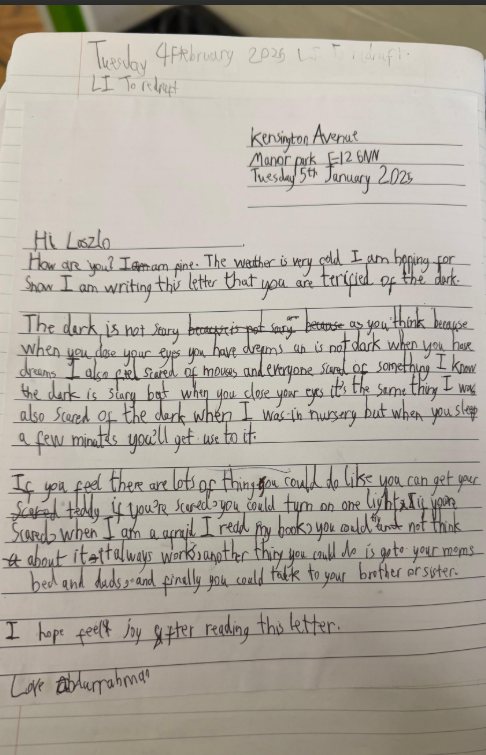 Tuesday 4 February 2025 LI To redraft.
LI To redraft
Kensington Avenue
Manor park E12 6NN
Tuesday 5th January 2025
Hi Laszlo
How are you? I am am fine. The weather is very cold I am hoping for
snow I am writing this letter that you are terified of the dark.
The dark is not scary because is not scary or because as you think because
when you close your eyes you have dreams an is not dark when you have
dreams I also feel scared of mouses and everyone scared of something I know
the dark is scary but when you close your eyes it's the same thing I was
also scared of the dark when I was in nursery but when you sleep
a few minutes you'll get use to it.
If you feel there are lots of thing you could do like you can get your
scared teddy if you're scared, you could turn on one light, If your
scared, when I am a afraid I read my book, you could not think
about it always works, another thing you could do is go to your moms
bed and dads, and finally you could talk to your brother or sister.
I hope feelt joy after reading this letter.
Love Abdurrahman